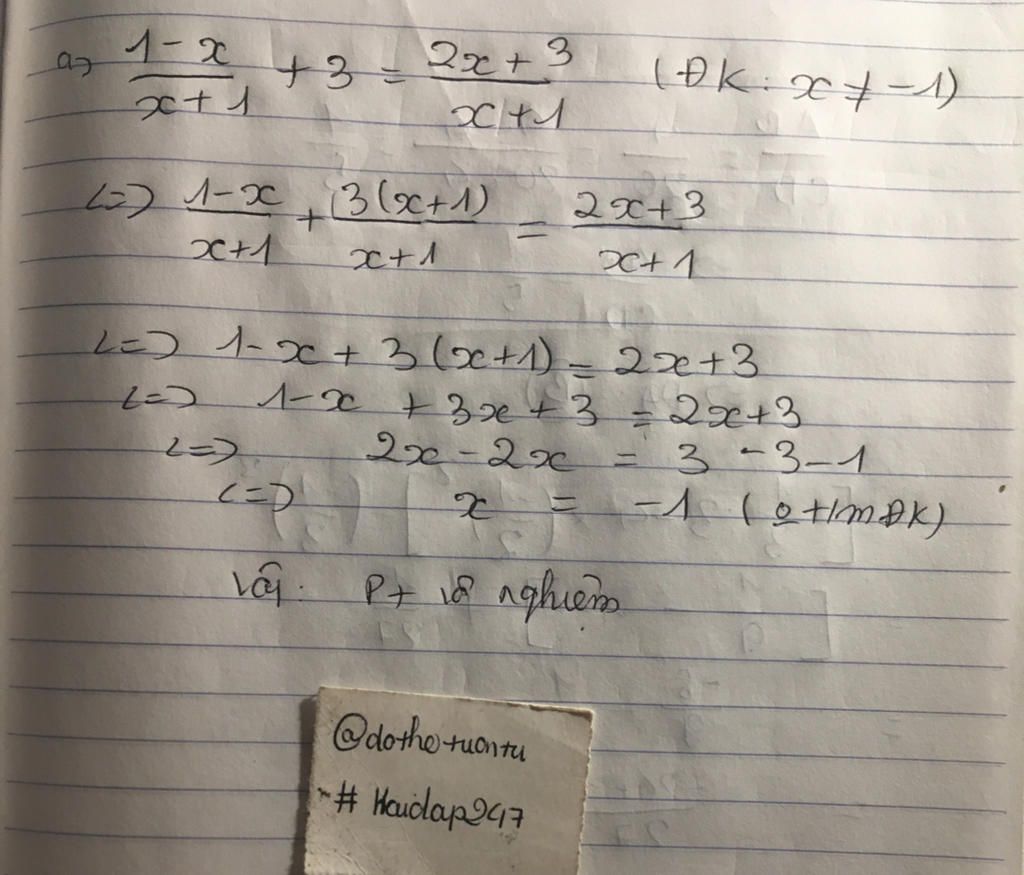 a, (1-x)/(x+1) + 3 = (2x+3)/(x+1) (ĐK: x ≠ -1)
<=> (1-x)/(x+1) + 3(x+1)/(x+1) = (2x+3)/(x+1)
<=> 1-x + 3(x+1) = 2x+3
<=> 1-x + 3x + 3 = 2x+3
<=> 2x - 2x = 3 - 3 - 1
<=> x = -1 (o t/m ĐK)
Vậy. Pt vô nghiệm
@dothetuantu
# Hoidap247